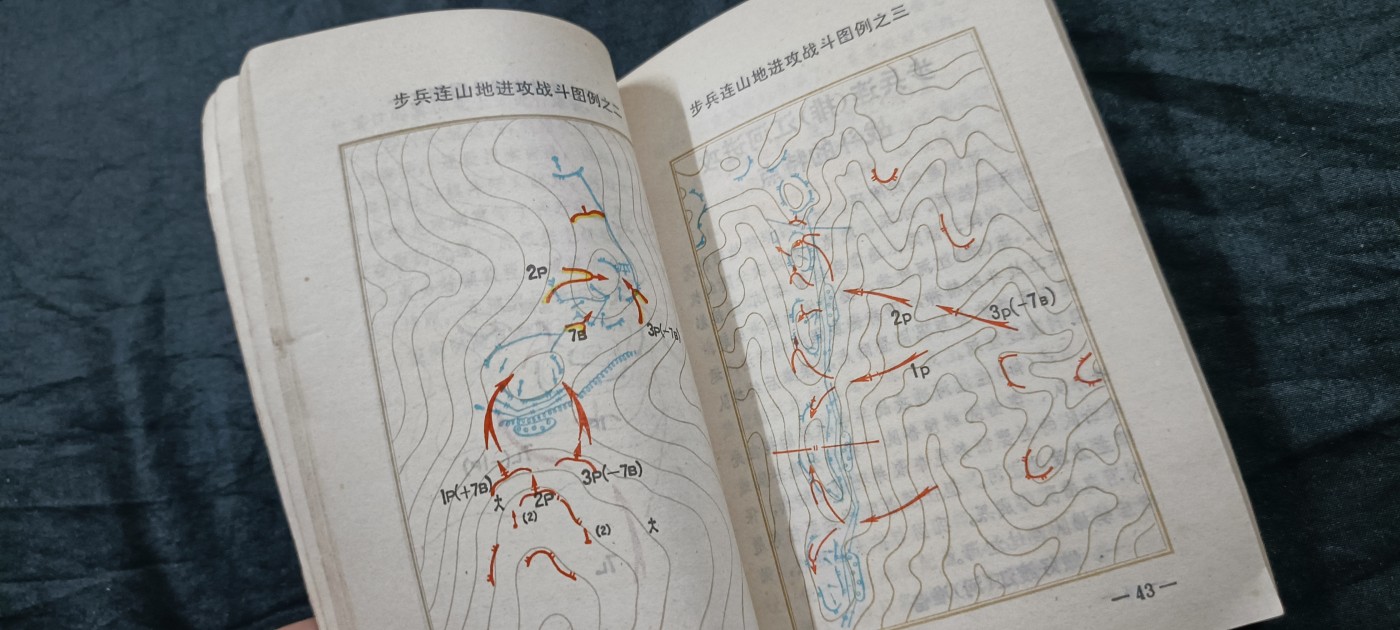 步兵连山地进攻战斗图例之二
2P
7B
3P(-7B)
1P(+7B)
2P
3P(-7B)
大
(2)
(2)
大
步兵连山地进攻战斗图例之三
2P
3P(-7B)
1P
—43—